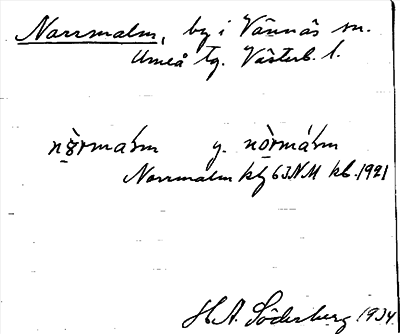 Norrmalm, by i Vännäs sn.
Umeå tg. Västerb. l.
nòrmaḿ y. nòrmáḿ
Norrmalm kbg 63 NM kb. 1921
H. A. Söderberg 1934.